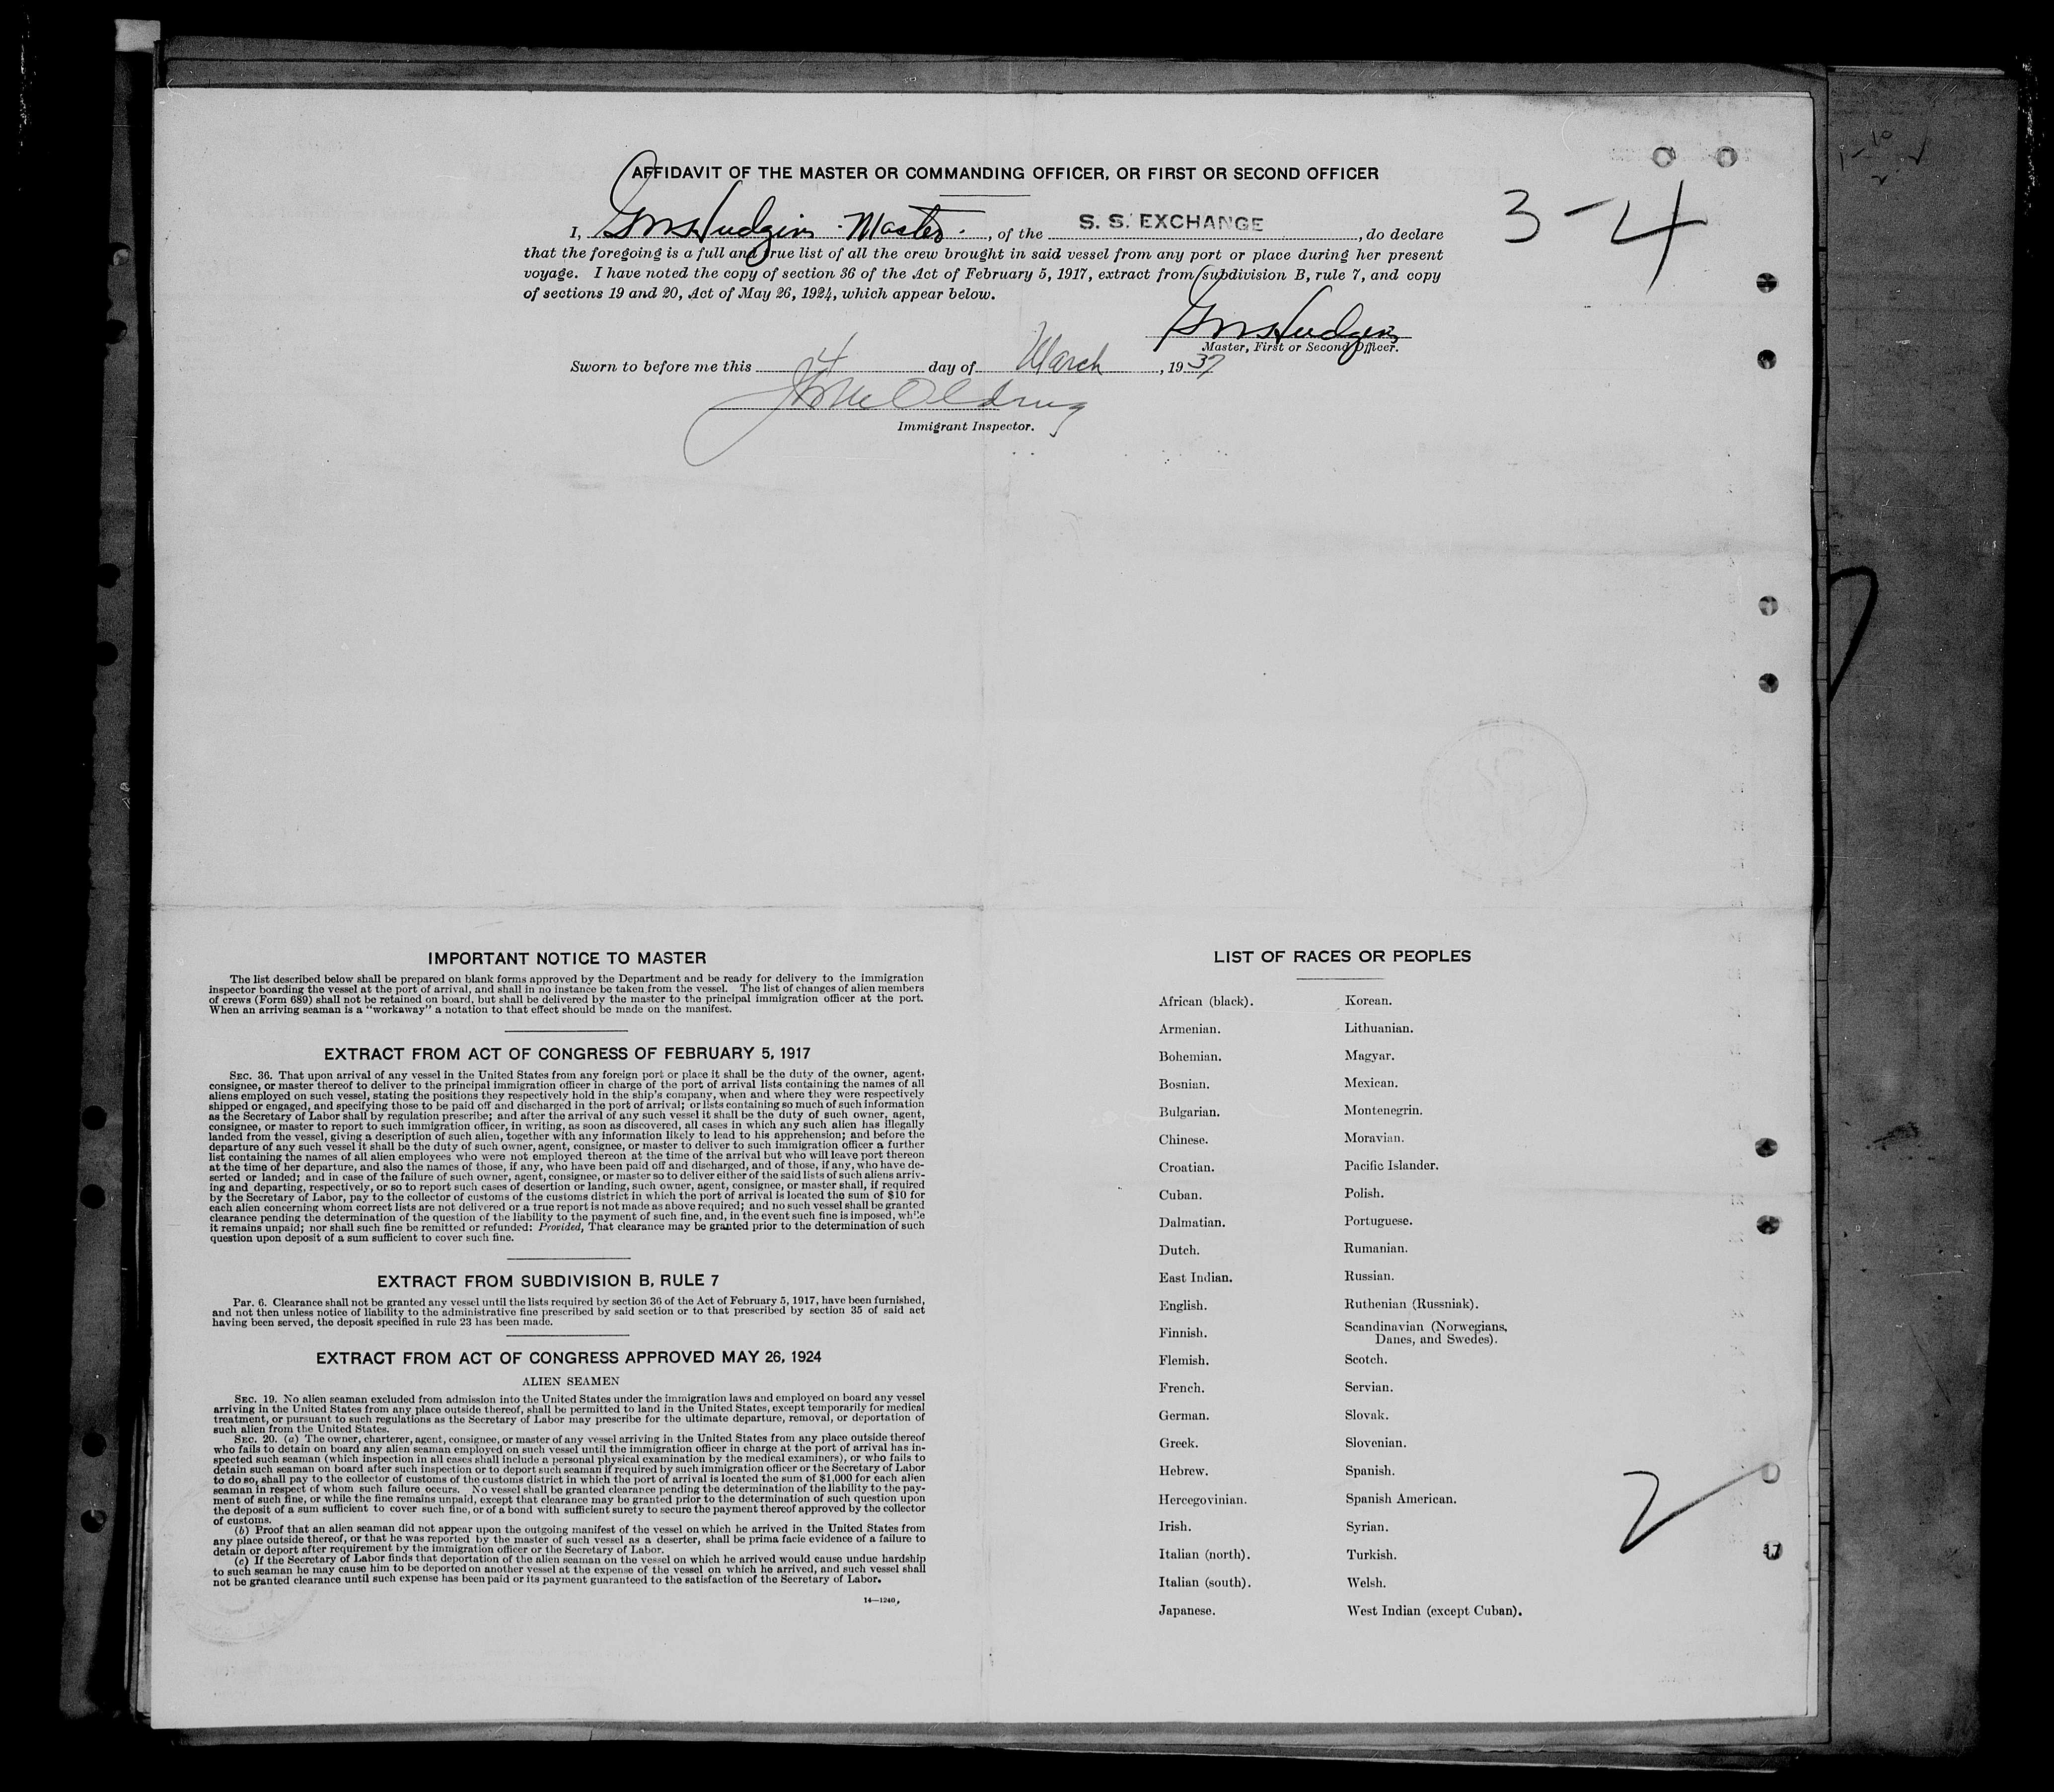 AFFIDAVIT OF THE MASTER OR COMMANDING OFFICER, OR FIRST OR SECOND OFFICER
3-4
I, GMHudgins Master, of the S. S. EXCHANGE, do declare
that the foregoing is a full and true list of all the crew brought in said vessel from any port or place during her present
voyage. I have noted the copy of section 36 of the Act of February 5, 1917, extract from subdivision B, rule 7, and copy
of sections 19 and 20, Act of May 26, 1924, which appear below.
GMHudgins
Master, First or Second Officer.
Sworn to before me this 4 day of March, 1937
Immigrant Inspector.
IMPORTANT NOTICE TO MASTER
The list described below shall be prepared on blank forms approved by the Department and be ready for delivery to the immigration
inspector boarding the vessel at the port of arrival, and shall in no instance be taken from the vessel. The list of changes of alien members
of crews (Form 689) shall not be retained on board, but shall be delivered by the master to the principal immigration officer at the port.
When an arriving seaman is a "workaway" a notation to that effect should be made on the manifest.
EXTRACT FROM ACT OF CONGRESS OF FEBRUARY 5, 1917
SEC. 36. That upon arrival of any vessel in the United States from any foreign port or place it shall be the duty of the owner, agent,
consignee, or master thereof to deliver to the principal immigration officer in charge of the port of arrival lists containing the names of all
aliens employed on such vessel, stating the positions they respectively hold in the ship's company, when and where they were respectively
shipped or engaged, and specifying those to be paid off and discharged in the port of arrival; or lists containing so much of such information
as the Secretary of Labor shall by regulation prescribe; and after the arrival of any such vessel it shall be the duty of such owner, agent,
consignee, or master to report to such immigration officer, in writing, as soon as discovered, all cases in which any such alien has illegally
landed from the vessel, giving a description of such alien, together with any information likely to lead to his apprehension; and before the
departure of any such vessel it shall be the duty of such owner, agent, consignee, or master to deliver to such immigration officer a further
list containing the names of all alien employees who were not employed thereon at the time of the arrival but who will leave port thereon
at the time of her departure, and also the names of those, if any, who have been paid off and discharged, and of those, if any, who have de-
serted or landed; and in case of the failure of such owner, agent, consignee, or master so to deliver either of the said lists of such aliens arriv-
ing and departing, respectively, or so to report such cases of desertion or landing, such owner, agent, consignee, or master shall, if required
by the Secretary of Labor, pay to the collector of customs of the customs district in which the port of arrival is located the sum of $10 for
each alien concerning whom correct lists are not delivered or a true report is not made as above required; and no such vessel shall be granted
clearance pending the determination of the question of the liability to the payment of such fine, and, in the event such fine is imposed, while
it remains unpaid; nor shall such fine be remitted or refunded: Provided, That clearance may be granted prior to the determination of such
question upon deposit of a sum sufficient to cover such fine.
EXTRACT FROM SUBDIVISION B, RULE 7
Par. 6. Clearance shall not be granted any vessel until the lists required by section 36 of the Act of February 5, 1917, have been furnished,
and not then unless notice of liability to the administrative fine prescribed by said section or to that prescribed by section 35 of said act
having been served, the deposit specified in rule 23 has been made.
EXTRACT FROM ACT OF CONGRESS APPROVED MAY 26, 1924
ALIEN SEAMEN
SEC. 19. No alien seaman excluded from admission into the United States under the immigration laws and employed on board any vessel
arriving in the United States from any place outside thereof, shall be permitted to land in the United States, except temporarily for medical
treatment, or pursuant to such regulations as the Secretary of Labor may prescribe for the ultimate departure, removal, or deportation of
such alien from the United States.
SEC. 20. (a) The owner, charterer, agent, consignee, or master of any vessel arriving in the United States from any place outside thereof
who fails to detain on board any alien seaman employed on such vessel until the immigration officer in charge at the port of arrival has in-
spected such seaman (which inspection in all cases shall include a personal physical examination by the medical examiners), or who fails to
detain such seaman on board after such inspection or to deport such seaman if required by such immigration officer or the Secretary of Labor
to do so, shall pay to the collector of customs of the customs district in which the port of arrival is located the sum of $1,000 for each alien
seaman in respect of whom such failure occurs. No vessel shall be granted clearance pending the determination of the liability to the pay-
ment of such fine, or while the fine remains unpaid, except that clearance may be granted prior to the determination of such question upon
the deposit of a sum sufficient to cover such fine, or of a bond with sufficient surety to secure the payment thereof approved by the collector
of customs.
(b) Proof that an alien seaman did not appear upon the outgoing manifest of the vessel on which he arrived in the United States from
any place outside thereof, or that he was reported by the master of such vessel as a deserter, shall be prima facie evidence of a failure to
detain or deport after requirement by the immigration officer or the Secretary of Labor.
(c) If the Secretary of Labor finds that deportation of the alien seaman on the vessel on which he arrived would cause undue hardship
to such seaman he may cause him to be deported on another vessel at the expense of the vessel on which he arrived, and such vessel shall
not be granted clearance until such expense has been paid or its payment guaranteed to the satisfaction of the Secretary of Labor.
14—1240
LIST OF RACES OR PEOPLES
African (black). Korean.
Armenian. Lithuanian.
Bohemian. Magyar.
Bosnian. Mexican.
Bulgarian. Montenegrin.
Chinese. Moravian.
Croatian. Pacific Islander.
Cuban. Polish.
Dalmatian. Portuguese.
Dutch. Rumanian.
East Indian. Russian.
English. Ruthenian (Russniak).
Finnish. Scandinavian (Norwegians,
Danes, and Swedes).
Flemish. Scotch.
French. Servian.
German. Slovak.
Greek. Slovenian.
Hebrew. Spanish.
Hercegovinian. Spanish American.
Irish. Syrian.
Italian (north). Turkish.
Italian (south). Welsh.
Japanese. West Indian (except Cuban).